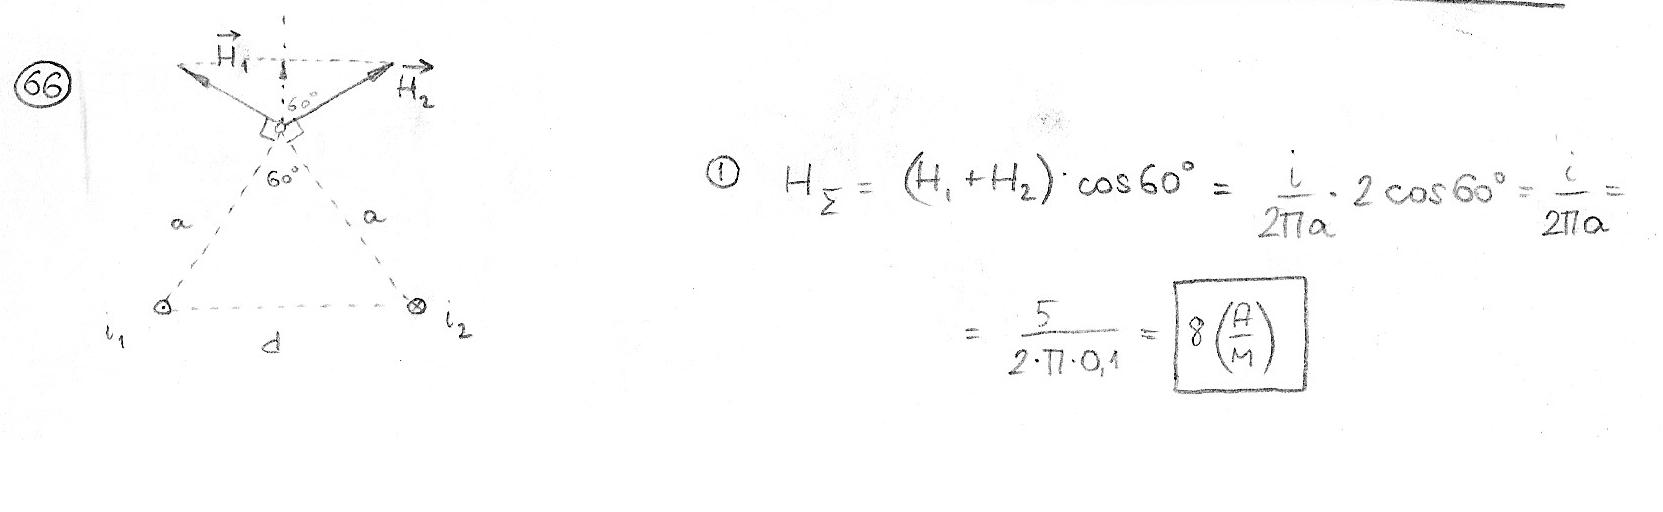 66
H₁
H₂
60°
60°
a a
i₁ d i₂
① H_Σ = (H₁ + H₂) · cos60° = i/2πa · 2 cos60° = i/2πa =
= 5/2·π·0,1 = 8 (А/м)